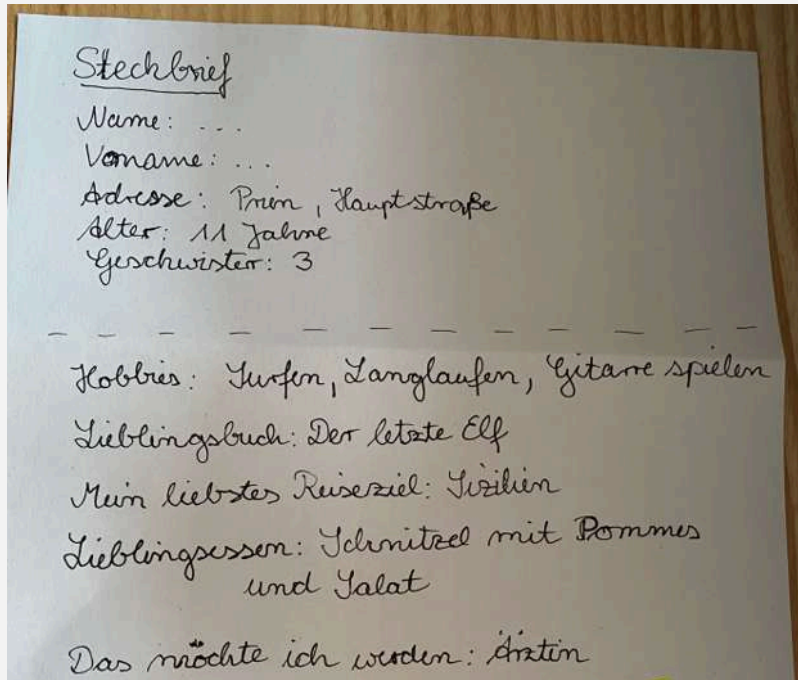 Steckbrief
Name: ...
Vorname: ...
Adresse: Prien, Hauptstraße
Alter: 11 Jahre
Geschwister: 3
Hobbies: Surfen, Langlaufen, Gitarre spielen
Lieblingsbuch: Der letzte Elf
Mein liebstes Reiseziel: Sizilien
Lieblingsessen: Schnitzel mit Pommes
und Salat
Das möchte ich werden: Ärztin